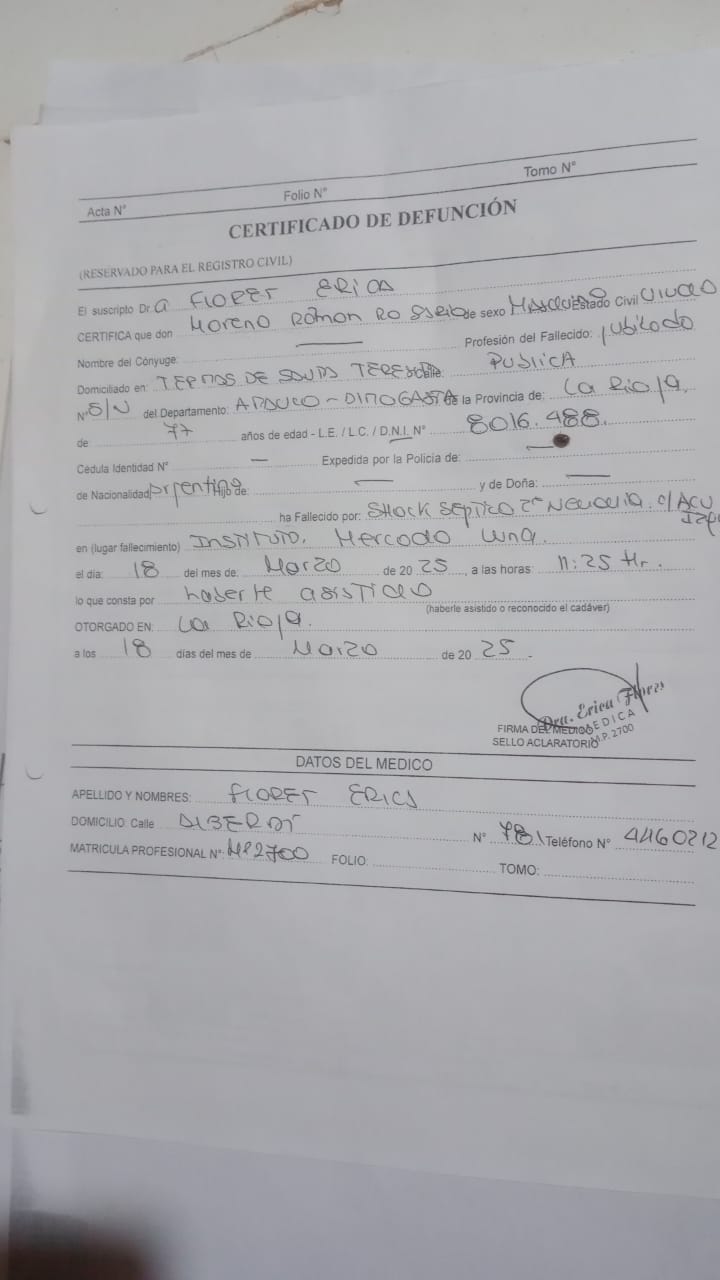 Acta N° Folio N° Tomo N°
CERTIFICADO DE DEFUNCIÓN
(RESERVADO PARA EL REGISTRO CIVIL)
El suscripto Dr.a FLORES ERICA
CERTIFICA que don Moreno Ramon Rosario de sexo Masculino Estado Civil Viudo
Nombre del Cónyuge: — Profesión del Fallecido: jubilado
Domiciliado en: TERMAS DE SANTA TERESITA Calle: PUBLICA
N° S/N del Departamento: ARAUCO - de la Provincia de: La Rioja.
de: 77 años de edad - L.E. / L.C. / D.N.I. N° 8016.488.
Cédula Identidad N° — Expedida por la Policía de: —
de Nacionalidad Argentina Hijo de: — y de Doña: —
ha Fallecido por: SHOCK SEPTICO 2° c/ACV
en (lugar fallecimiento) INSTITUTO. Mercado Luna.
el día: 18 del mes de: Marzo de 20 25, a las horas: 11:25 Hr.
lo que consta por haberle asistido
(haberle asistido o reconocido el cadáver)
OTORGADO EN: La Rioja.
a los 18 días del mes de Marzo de 20 25.
Dra. Erica Flores
MEDICA
M.P. 2700
FIRMA DEL MEDICO
SELLO ACLARATORIO
DATOS DEL MEDICO
APELLIDO Y NOMBRES: FLORES ERICA
DOMICILIO: Calle ALBERDI N° 781 Teléfono N° 4460212
MATRICULA PROFESIONAL N°: MP2700 FOLIO: TOMO: